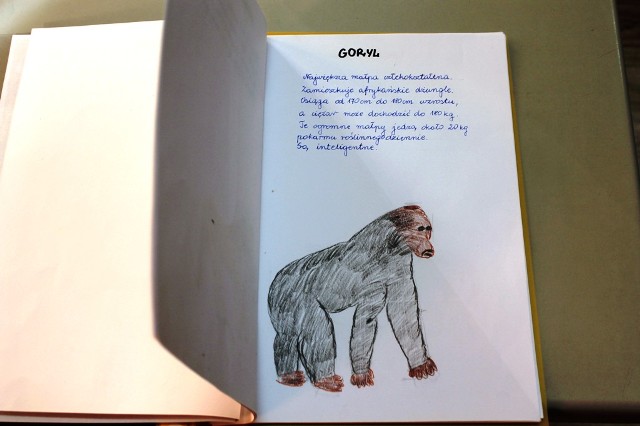 GORYL
Największa małpa człekokształtna.
Zamieszkuje afrykańskie dżungle.
Osiąga od 170 cm do 180 cm wzrostu,
a ciężar może dochodzić do 180 kg.
Te ogromne małpy jedzą około 20 kg
pokarmu roślinnego dziennie.
Są inteligentne.